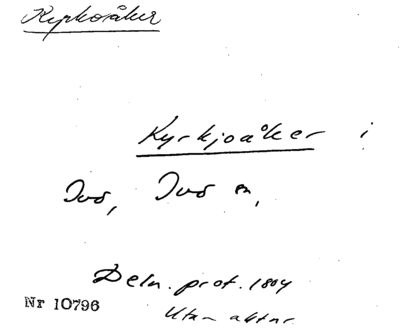 Kyrkoåker
Kyrkjoåker i
Ivö, Ivö sn,
Deln. prot. 1804
Nr 10796
Utan aktnr